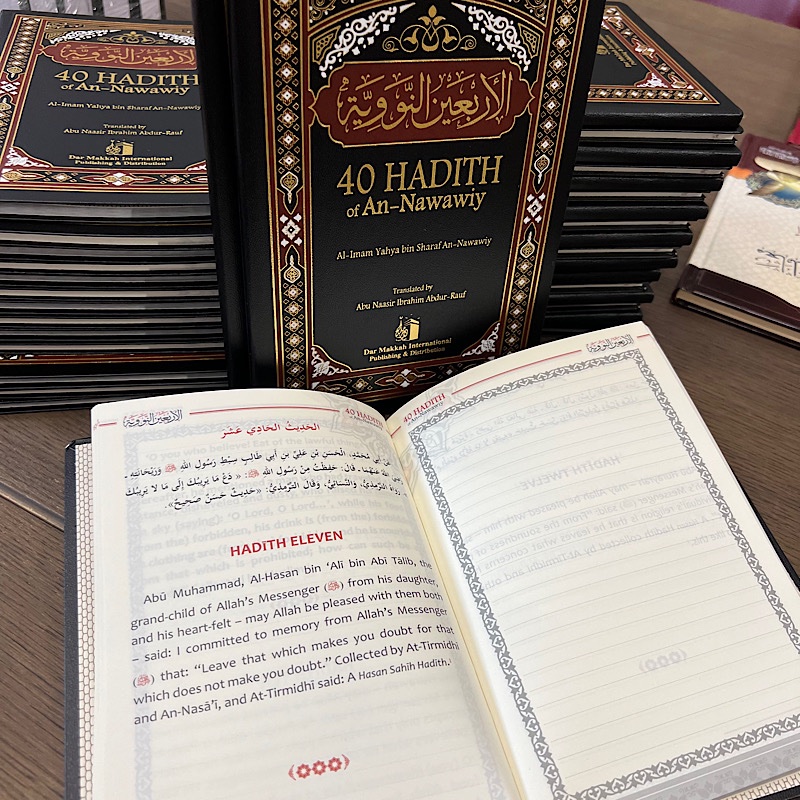 الأربعين النووية
40 HADITH
of An-Nawawiy
Al-Imam Yahya bin Sharaf An-Nawawiy
Translated by
Abu Naasir Ibrahim Abdur-Rauf
Dar Makkah International
Publishing & Distribution
الأَرْبَعِينَ النَّوَوِيَّة
40 HADITH
of An-Nawawiy
Al-Imam Yahya bin Sharaf An-Nawawiy
Translated by
Abu Naasir Ibrahim Abdur-Rauf
Dar Makkah International
Publishing & Distribution
الأربعين النووية
40 HADITH
الحَدِيثُ الحَادِي عَشَرَ
أَبِي مُحَمَّدٍ، الحَسَنِ بْنِ عَلِيِّ بْنِ أَبِي طَالِبٍ سِبْطِ رَسُولِ اللهِ ﷺ وَرَيْحَانَتِهِ -
اللهُ عَنْهُمَا - قَالَ: حَفِظْتُ مِنْ رَسُولِ اللهِ ﷺ: «دَعْ مَا يَرِيبُكَ إِلَى مَا لَا يَرِيبُكَ
رَوَاهُ التِّرْمِذِيُّ، وَالنَّسَائِيُّ، وَقَالَ التِّرْمِذِيُّ: «حَدِيثٌ حَسَنٌ صَحِيحٌ».
HADĪTH ELEVEN
Abū Muhammad, Al-Hasan bin ‘Alī bin Abī Tālib, the
grand-child of Allah’s Messenger (ﷺ) from his daughter,
and his heart-felt – may Allah be pleased with them both
– said: I committed to memory from Allah’s Messenger
(ﷺ) that: “Leave that which makes you doubt for that
which does not make you doubt.” Collected by At-Tirmidhī
and An-Nasā’ī, and At-Tirmidhī said: A Hasan Sahīh Hadīth.
40 HADITH
of An-Nawawiy
الأربعين النووية